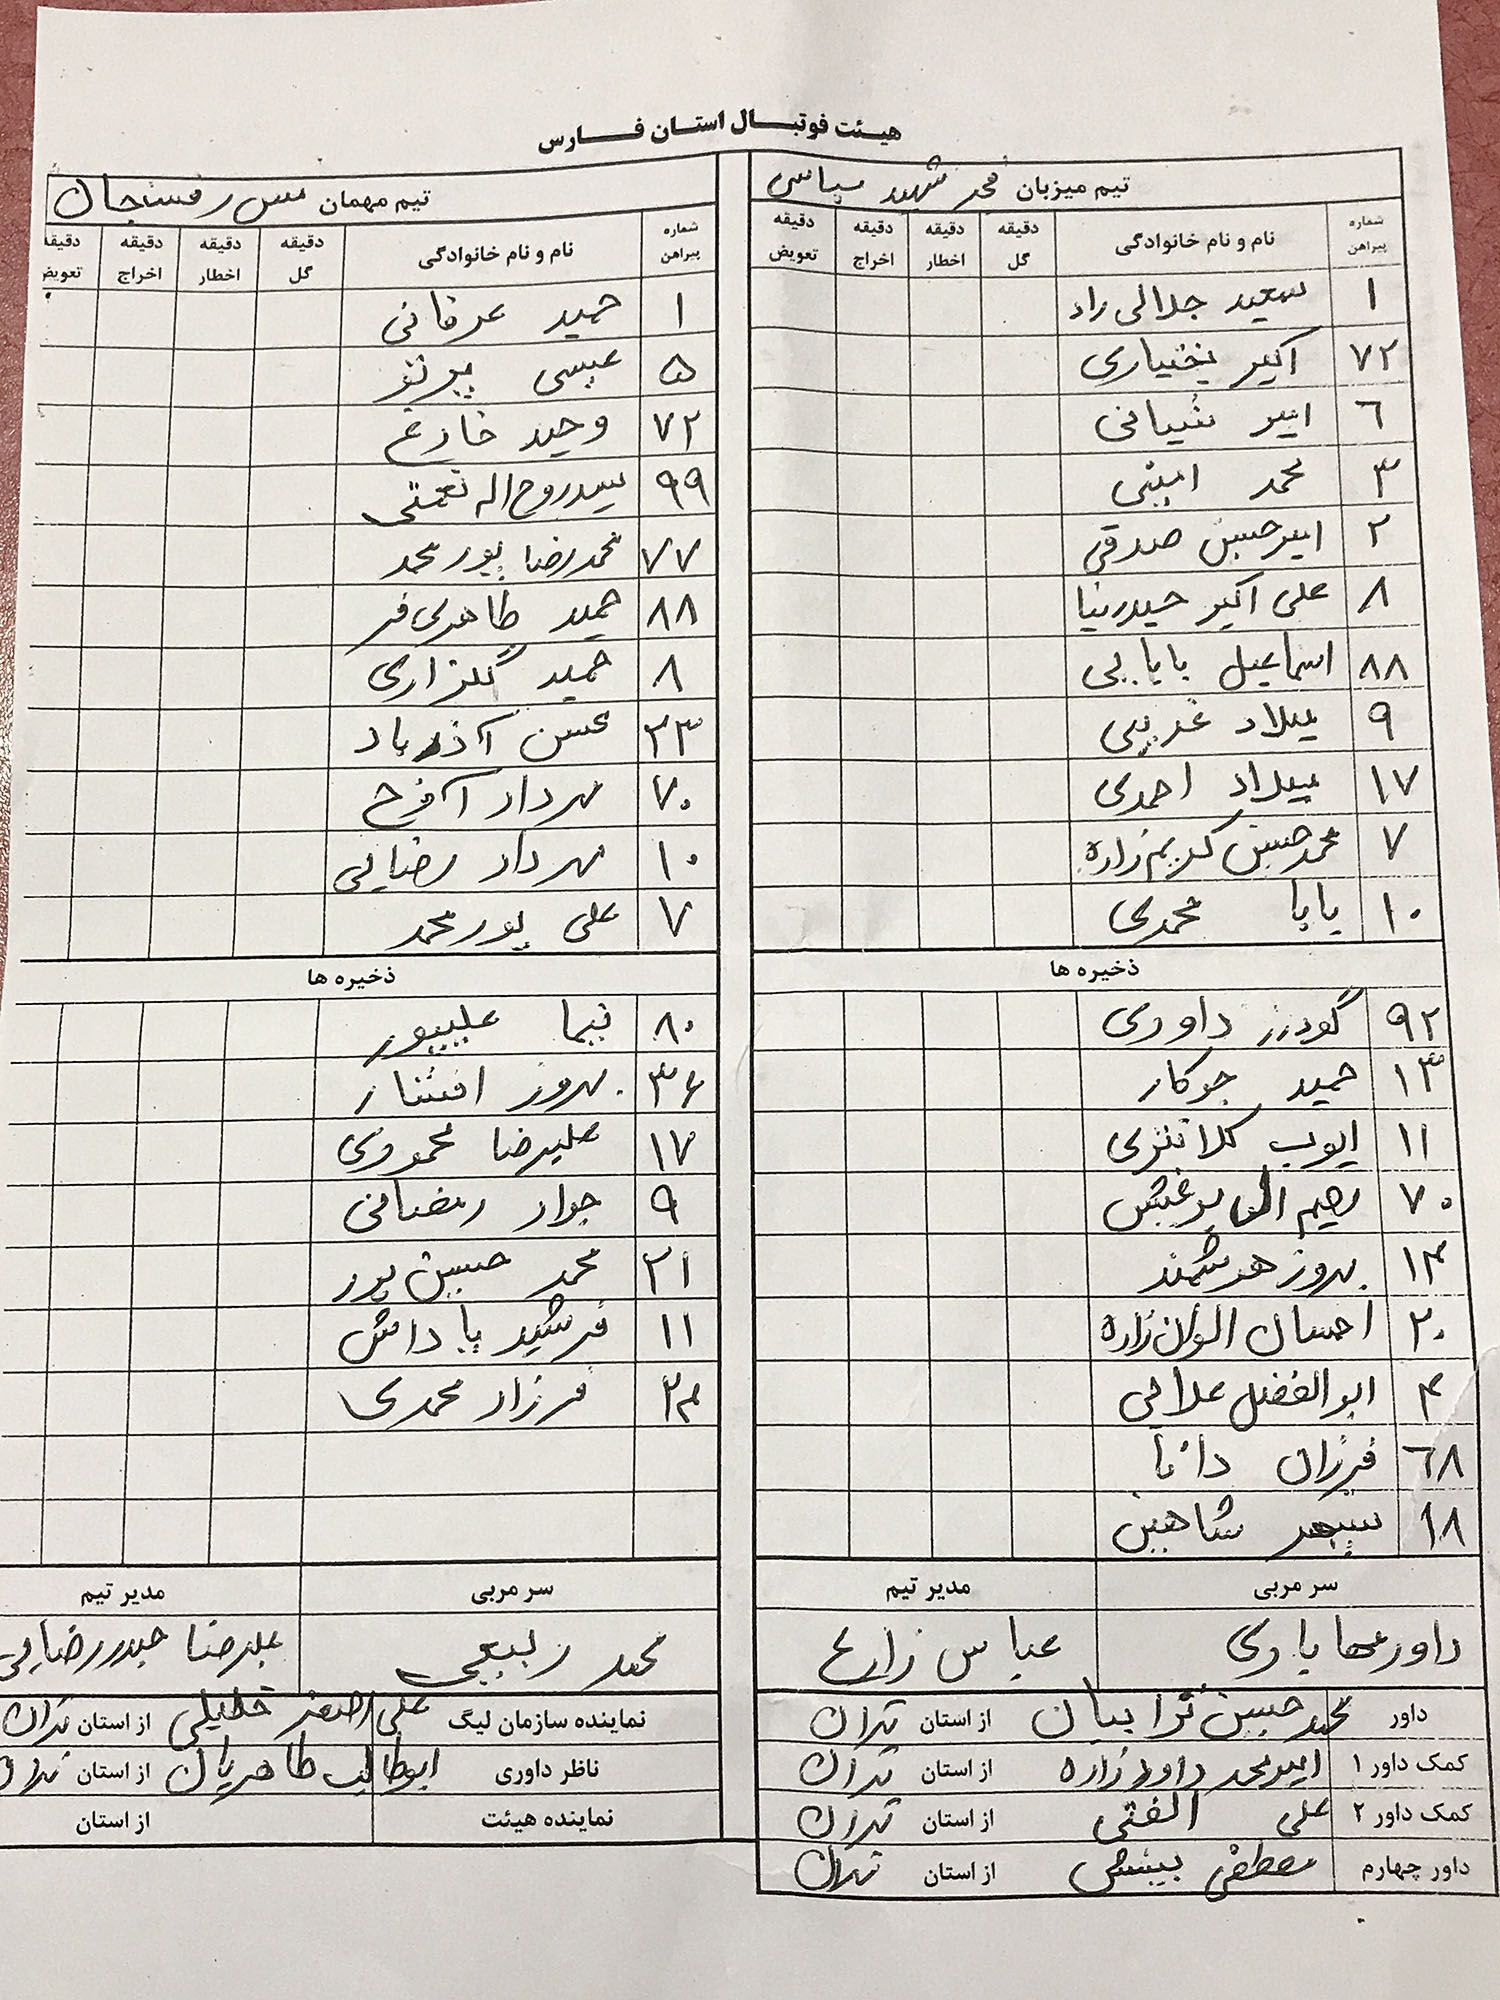 هیئت فوتبال استان فارس
تیم میزبان فجر شهید سپاسی
شماره پیراهن نام و نام خانوادگی دقیقه گل دقیقه اخطار دقیقه اخراج دقیقه تعویض
۱ سعید جلالی راد
۷۲ اکبر بختیاری
۶ امیر شیبانی
۳ محمد امینی
۲ امیرحسین صدقی
۸ علی اکبر حیدرنیا
۸۸ اسماعیل بابایی
۹ میلاد غریبی
۱۷ میلاد احمدی
۷ محمدحسین کریم زاده
۱۰ بابا محمدی
ذخیره ها
۹۲ گودرز داوری
۱۳ حمید جوکار
۱۱ ایوب کلانتری
۷۰ رحیم
۱۴ بهروز هوشمند
۲۰ احسان الوان زاده
۴ ابوالفضل علایی
۶۸ فرزان دانا
۱۸ شاهین
سر مربی مدیر تیم
داور مهابادی عباس زارع
داور محمدحسین ترابیان از استان تهران
کمک داور ۱ امیرمحمد داودزاده از استان تهران
کمک داور ۲ علی الفتی از استان تهران
داور چهارم مصطفی بینش از استان تهران
تیم مهمان مس رفسنجان
شماره پیراهن نام و نام خانوادگی دقیقه گل دقیقه اخطار دقیقه اخراج دقیقه تعویض
۱ حمید عرفانی
۵ عیسی پرتو
۷۲ وحید خارع
۹۹ سیدروح اله نعمتی
۷۷ محمدرضا پورمحمد
۸۸ حمید طاهری فر
۸ حمید گلزاری
۲۳ محسن آذرباد
۷۰ مهرداد آفرخ
۱۰ مهرداد رضایی
۷ علی پورمحمد
ذخیره ها
۸۰ نیما علیپور
۳۶ بهروز افشار
۱۷ علیرضا محمودی
۹ جواد رمضانی
۲۱ محمد حسین پور
۱۱ فرشید باداش
۲۴ فرزاد محمدی
سر مربی مدیر تیم
محمد ربیعی علیرضا حیدررضایی
نماینده سازمان لیگ علی اصغر خلیلی از استان تهران
ناظر داوری ابوطالب طاهریان از استان تهران
نماینده هیئت از استان